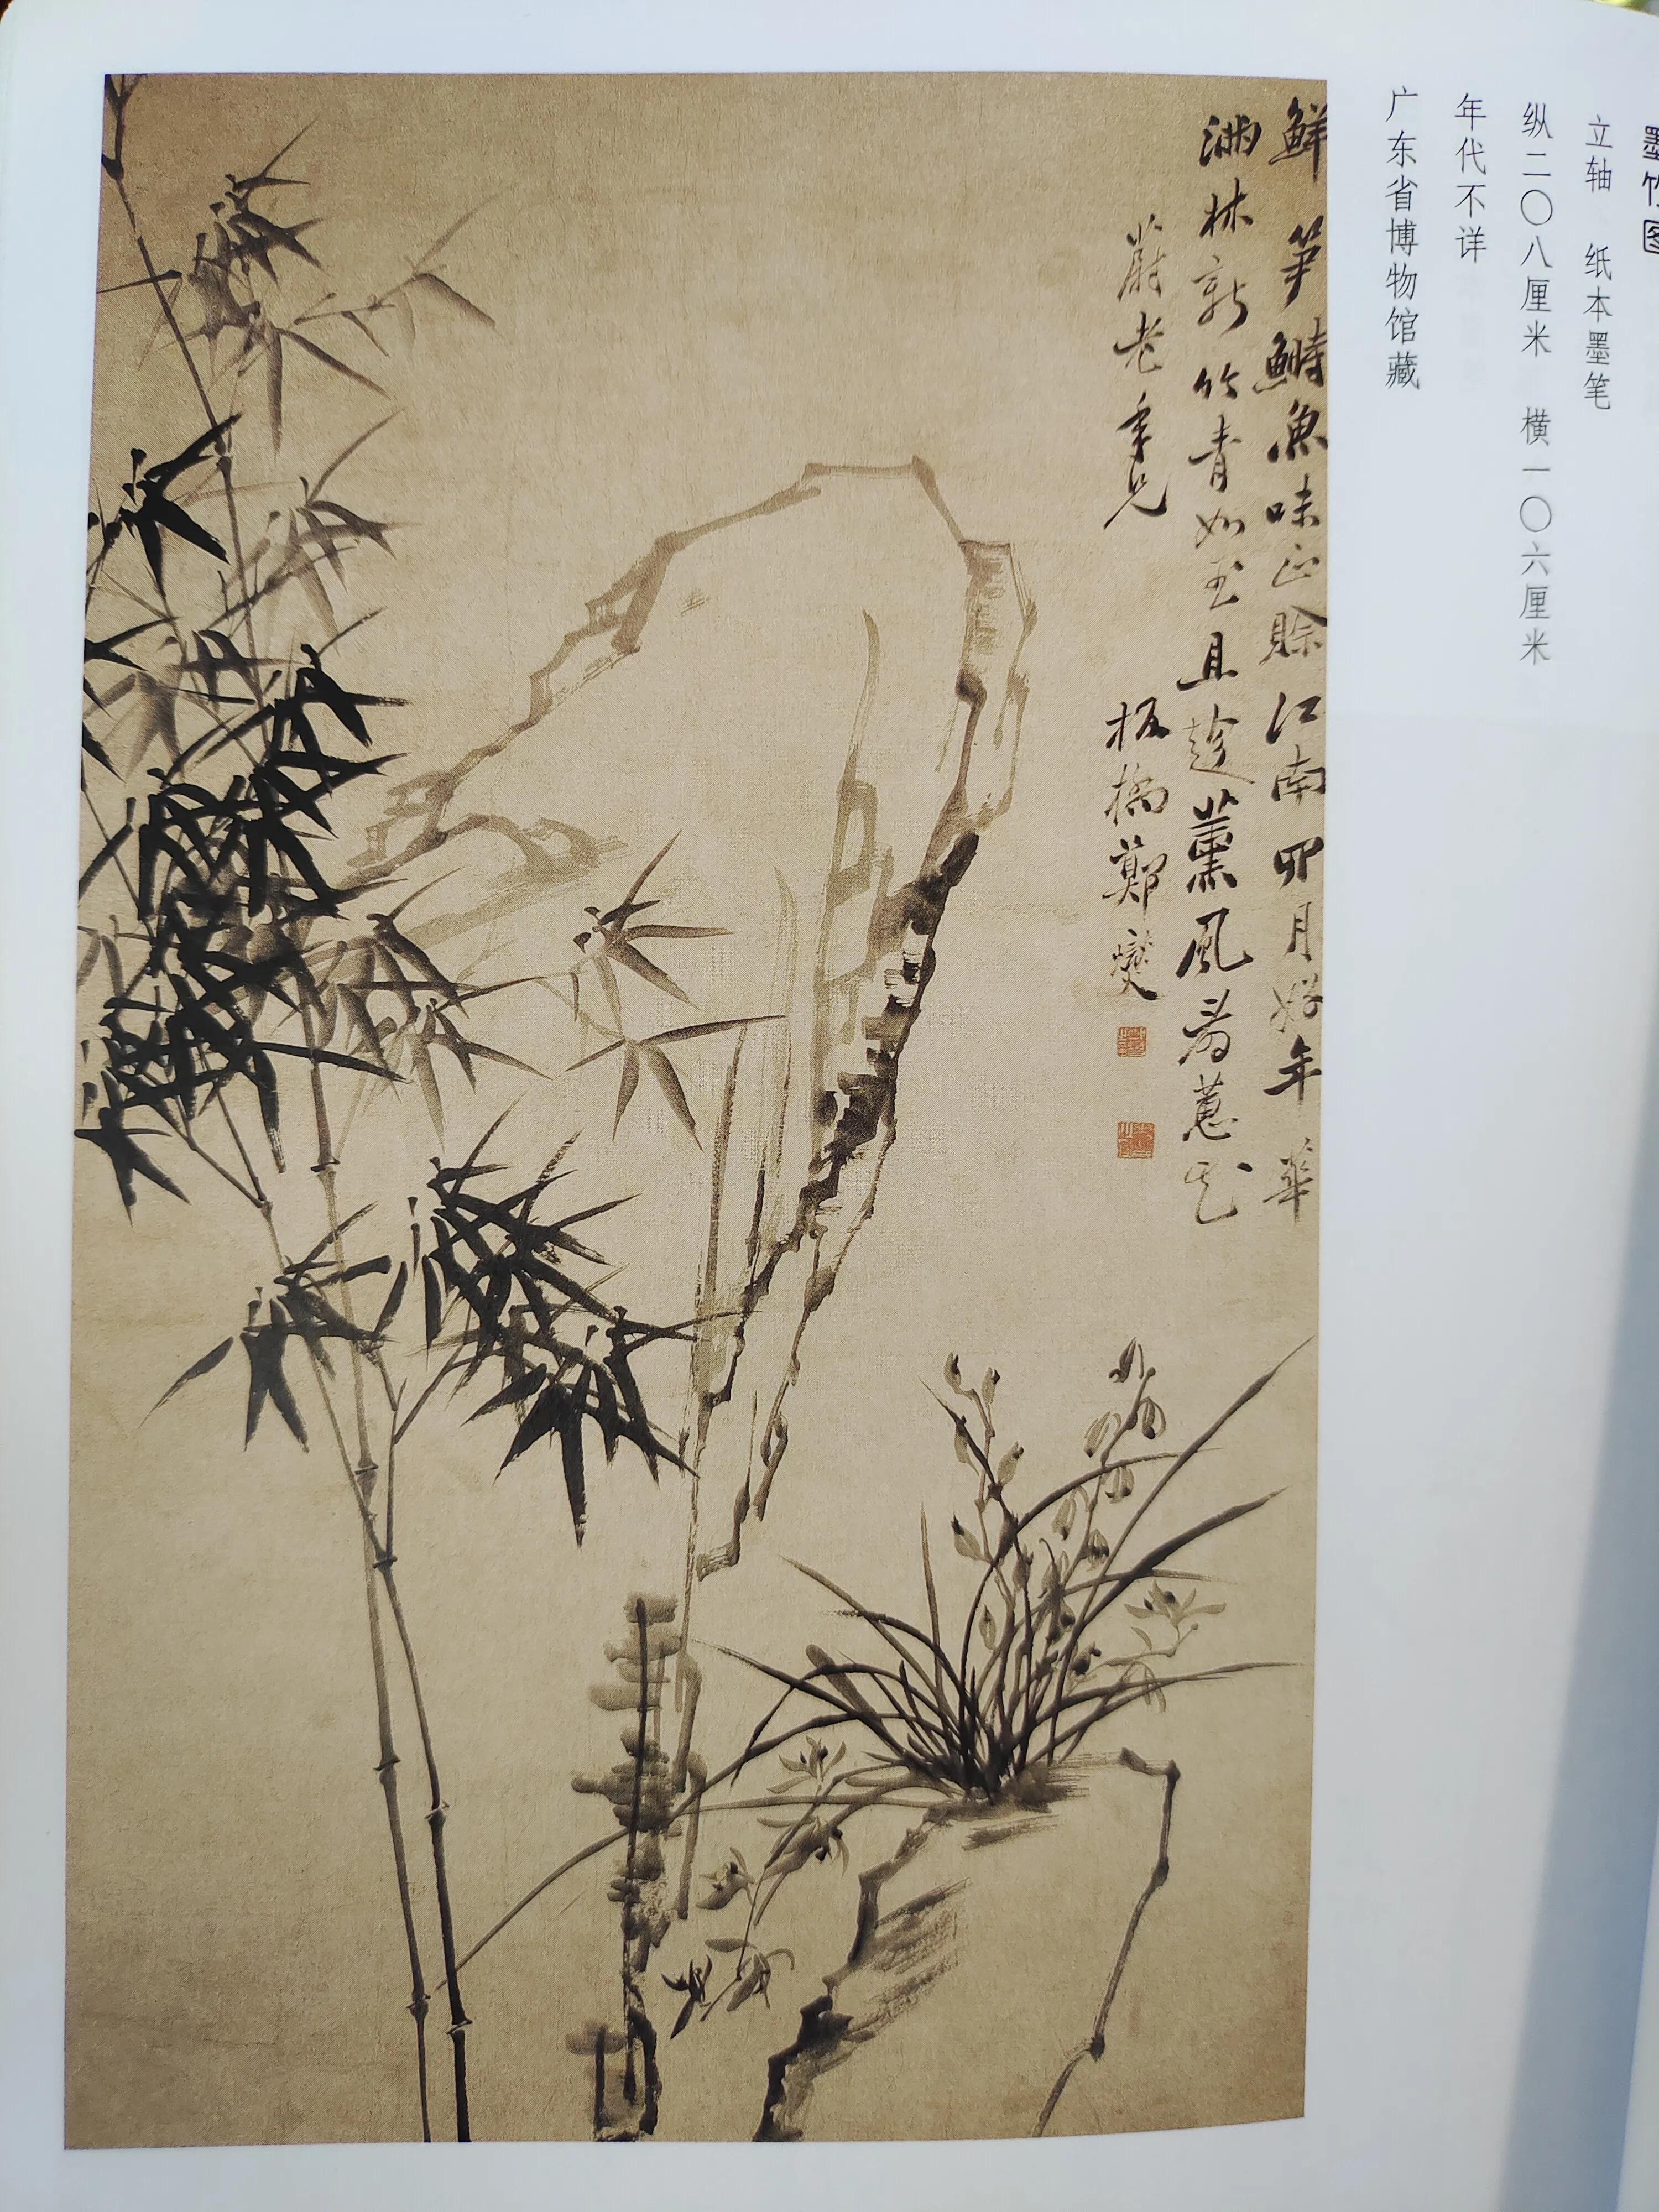 墨竹图
立轴 纸本墨笔
纵二〇八厘米 横一〇六厘米
年代不详
广东省博物馆藏
鮮笋鰣魚味正賒江南四月好年華
滿林新竹青如玉且趁薰風看蕙花
蔚老年兄 板橋鄭燮